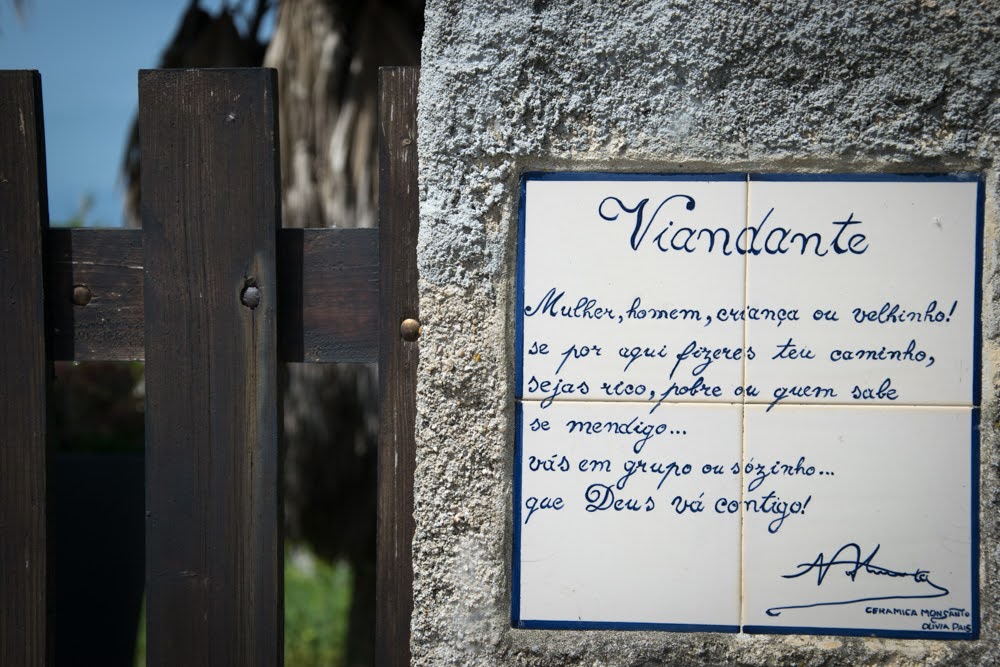 Viandante
Mulher, homem, criança ou velhinho!
se por aqui fizeres teu caminho,
sejas rico, pobre ou quem sabe
se mendigo...
vás em grupo ou sózinho...
que Deus vá contigo!
CERAMICA MONSANTO
OLIVIA PAIS